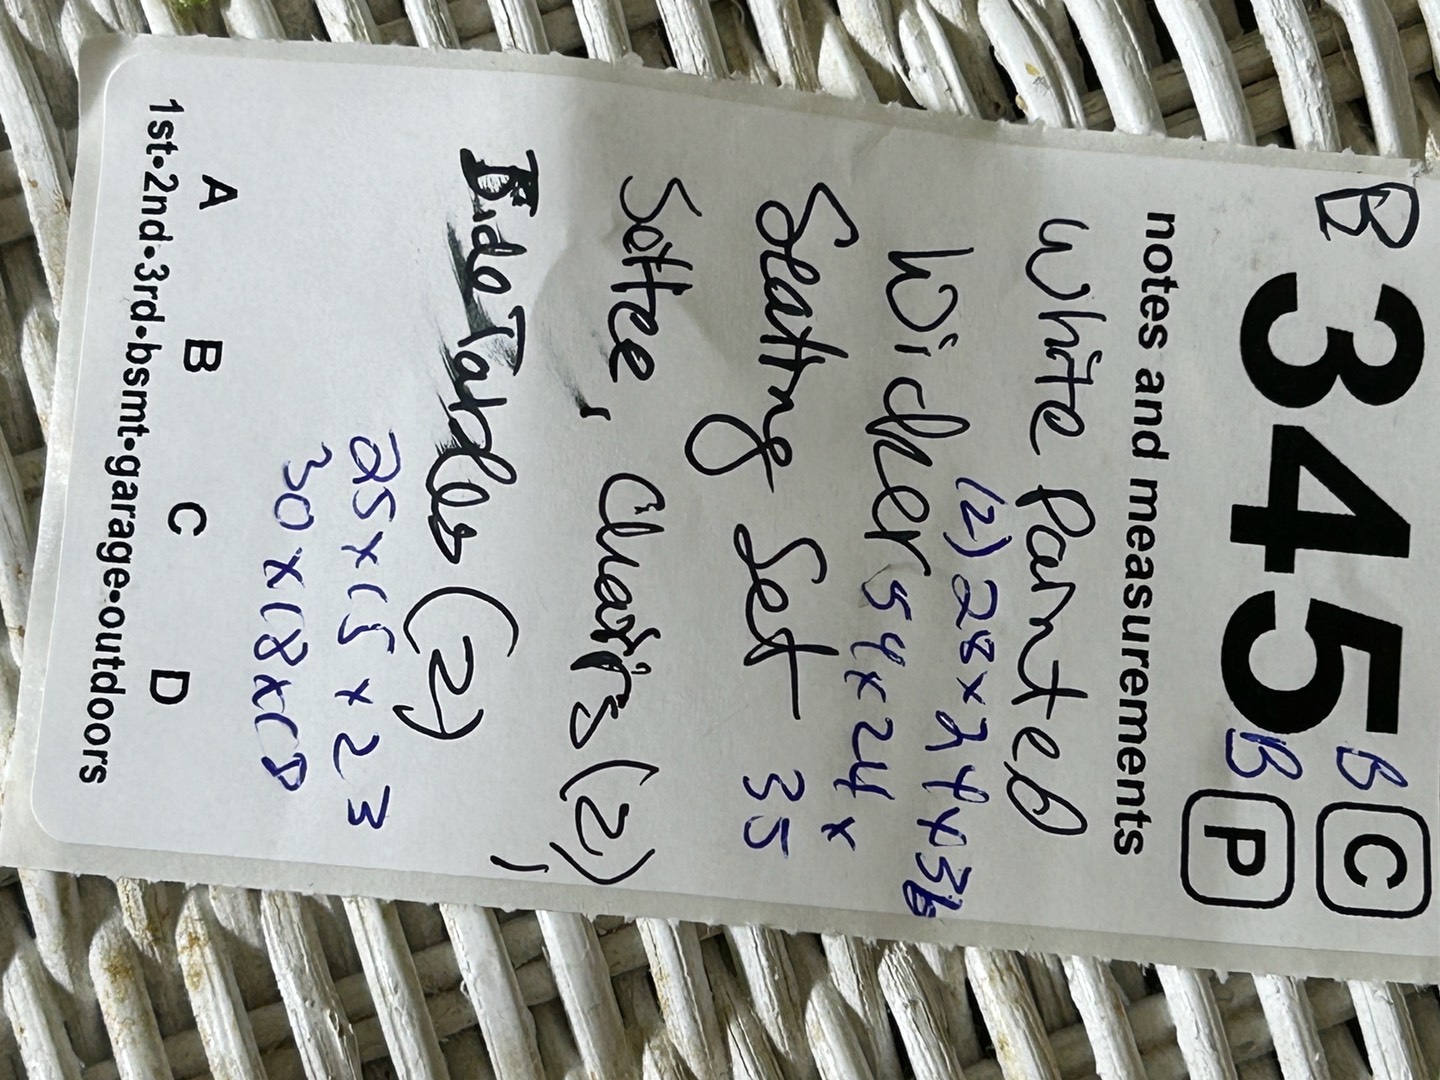 B 345 B C
B P
notes and measurements
White Painted
(2) 28x24x36
Wicker 54x24x
Seating Set 35
Settee, Chairs (2),
Side Tables (2)
25x15x23
30x18x18
A B C D
1st•2nd•3rd•bsmt•garage•outdoors